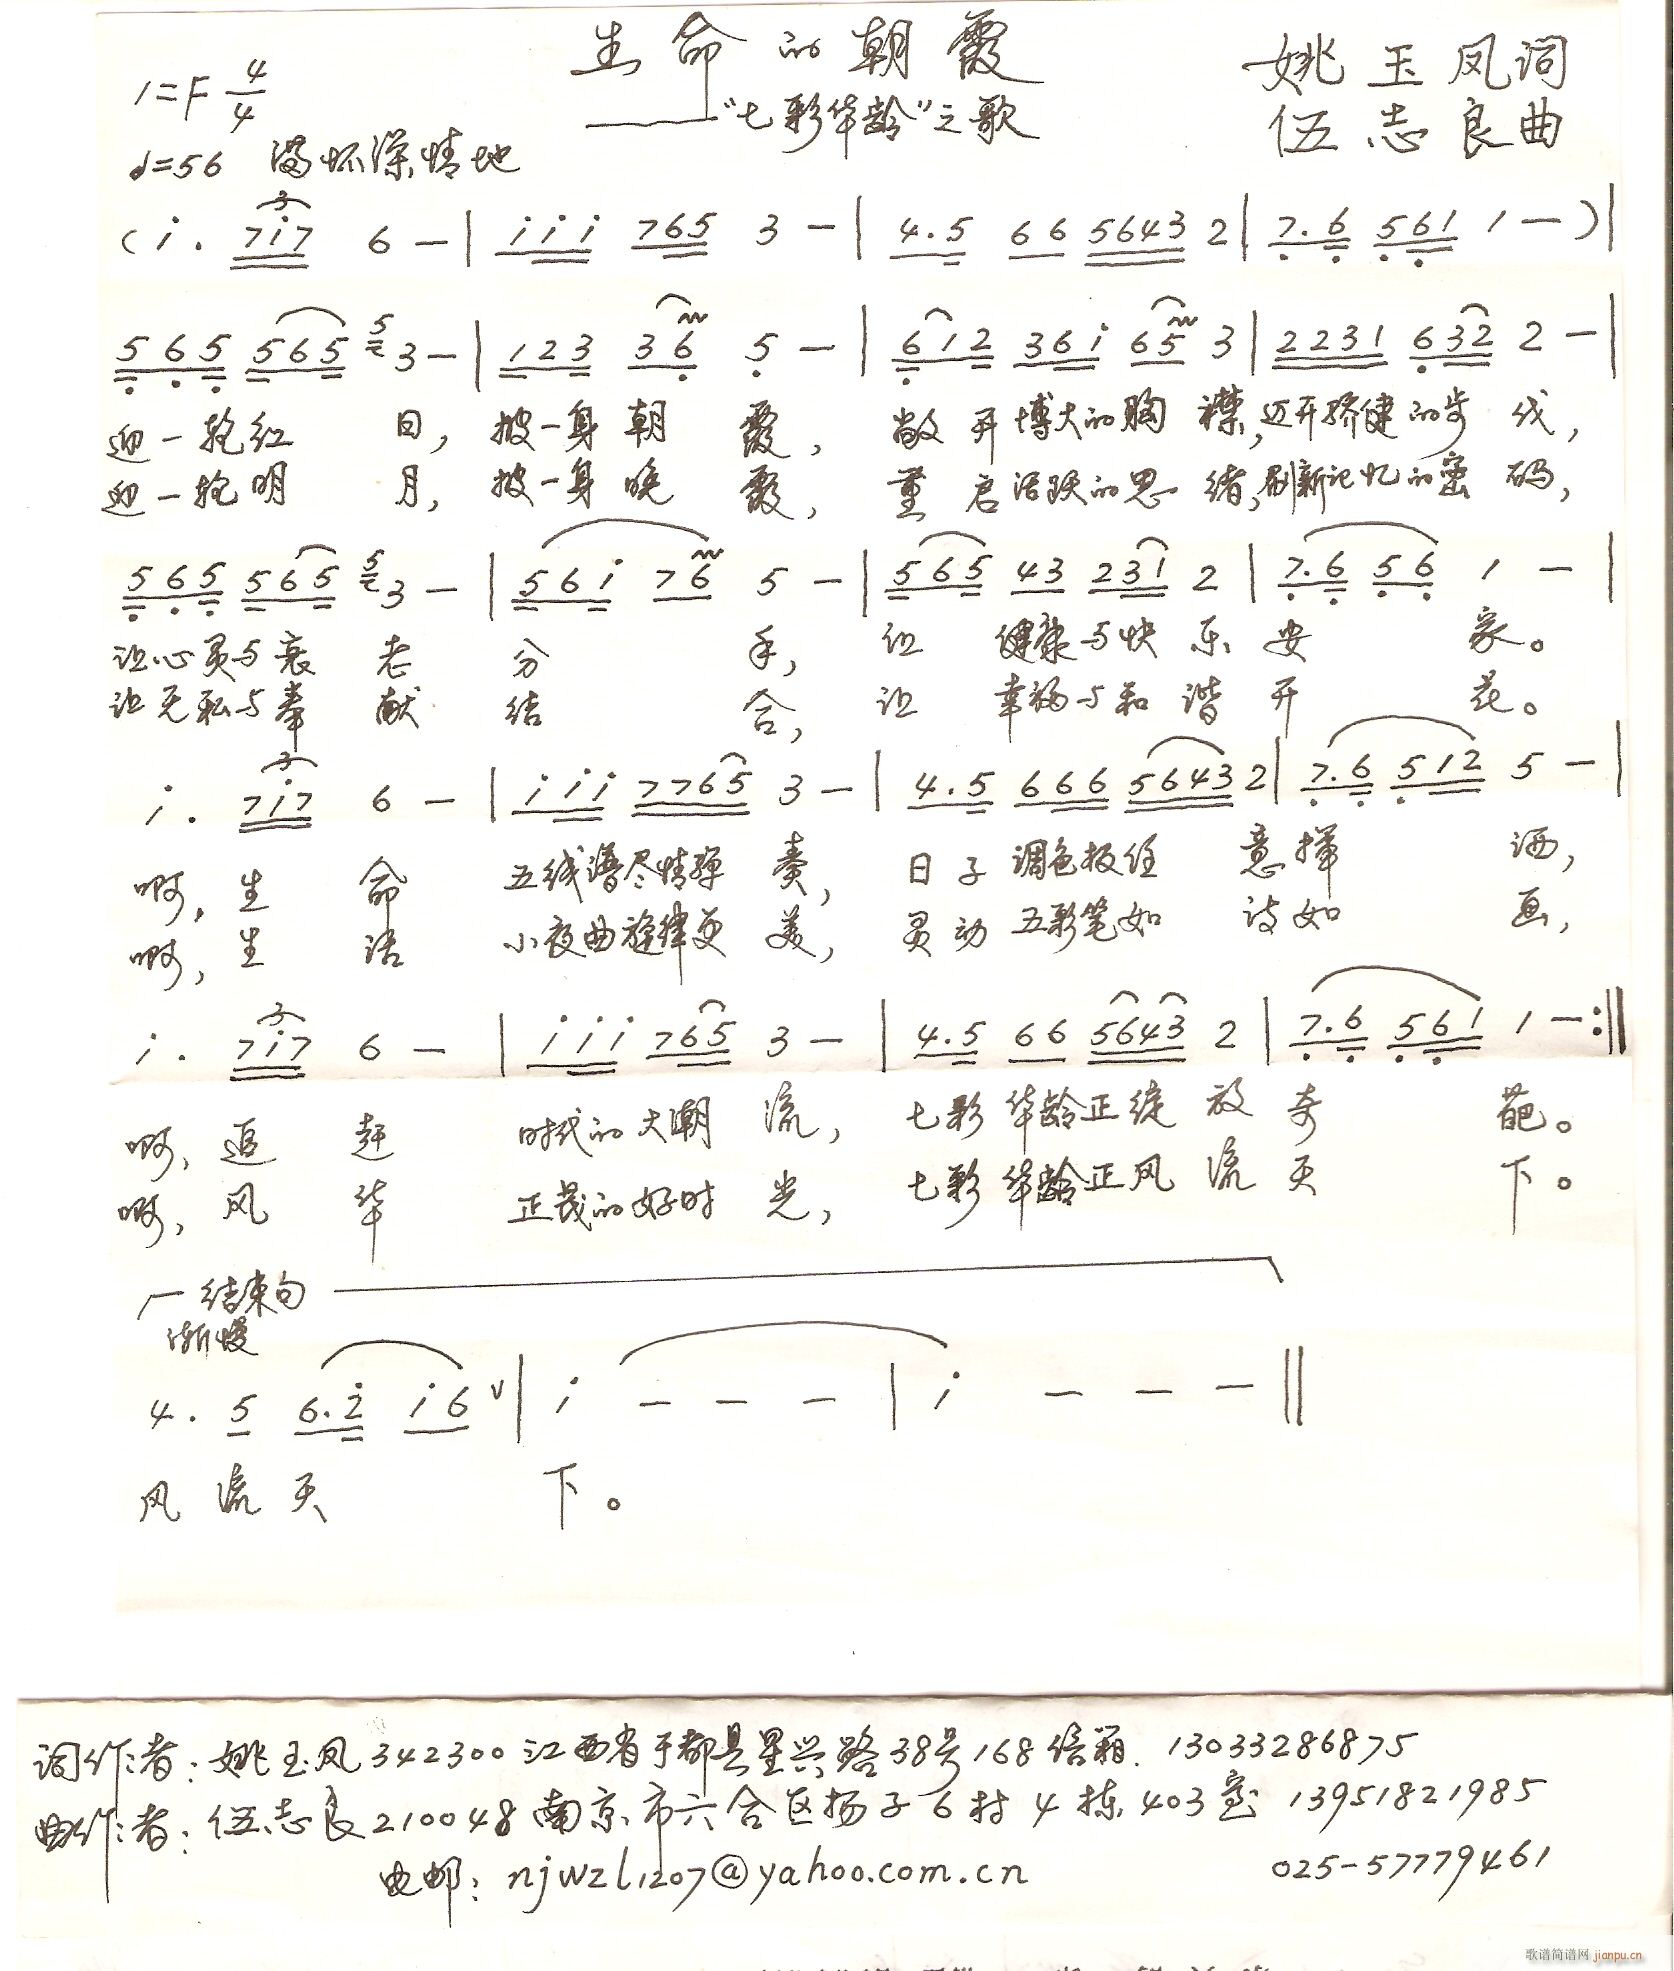 生命的朝霞
——"七彩华龄"之歌
姚玉凤词
伍志良曲
1=F 4/4
♩=56 满怀深情地
(i. 7i7 6 — | i i i 765 3 — | 4.5 66 5643 2 | 7.6 561 1 — )|
565 565 3 — | 123 36 5 — | 612 36i 65 3 | 2231 632 2 — |
迎一轮红 日, 披一身朝 霞, 敞开博大的胸 襟, 迈开矫健的步 伐,
迎一轮明 月, 披一身晚 霞, 重启活跃的思 绪, 刷新记忆的密 码,
565 565 3 — | 56i 76 5 — | 565 43 231 2 | 7.6 56 1 — |
让心灵与衰 老 分 手, 让 健康与快 乐 安 家。
让无私与奉 献 结 合, 让 幸福与和 谐 开 花。
i. 7i7 6 — | i i i 7765 3 — | 4.5 666 5643 2 | 7.6 512 5 — |
啊, 生 命 五线谱尽情弹 奏, 日子 调色板任 意挥 洒,
啊, 生 活 小夜曲旋律更 美, 灵动 五彩笔如 诗如 画,
i. 7i7 6 — | i i i 765 3 — | 4.5 66 5643 2 | 7.6 561 1 — :‖
啊, 追 赶 时代的大潮 流, 七彩 华龄正绽 放 奇 葩。
啊, 风 华 正茂的好时 光, 七彩 华龄正风 流 天 下。
结束句
渐慢
4. 5 6.2 i6 V | i — — — | i — — — ‖
风 流 天 下。
词作者: 姚玉凤 342300 江西省于都县星兴路38号168信箱. 13033286875
曲作者: 伍志良 210048 南京市六合区扬子6村4栋403室 13951821985
电邮: njwzl1207@yahoo.com.cn 025-57779461
歌谱简谱网 jianpu.cn